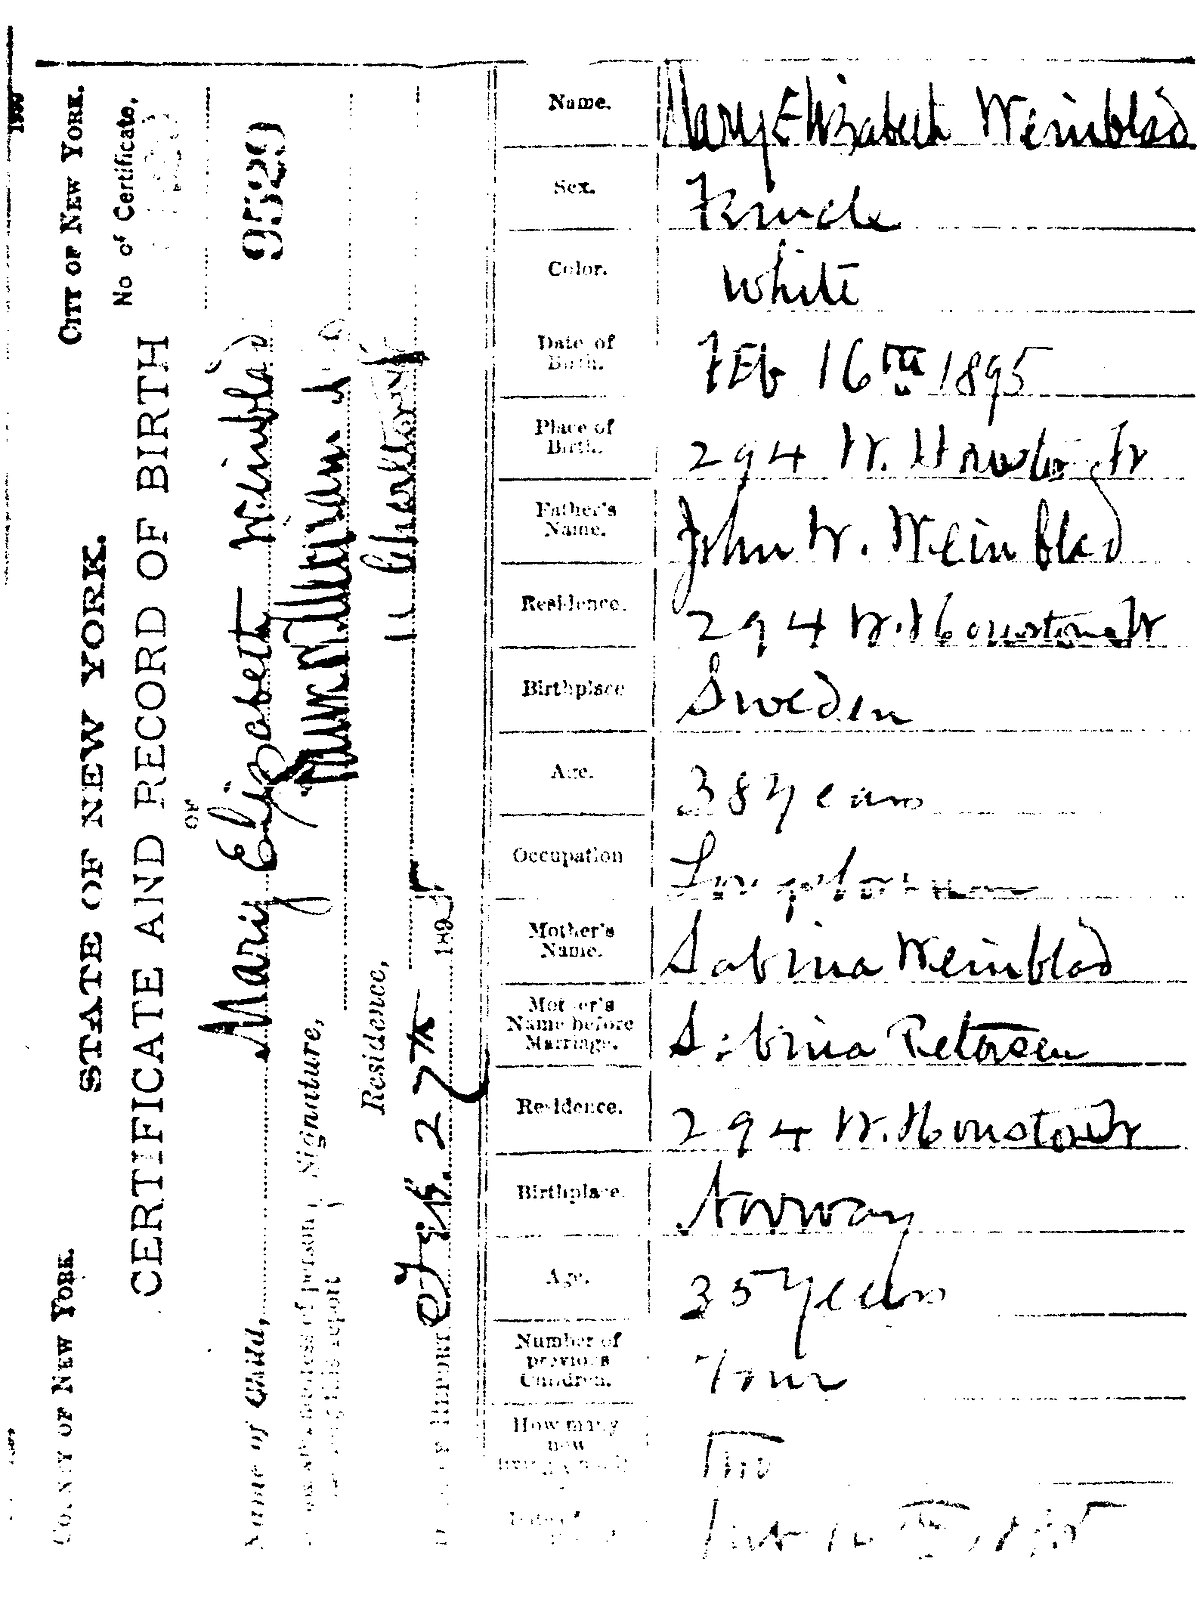 STATE OF NEW YORK.
COUNTY OF NEW YORK.
CITY OF NEW YORK.
CERTIFICATE AND RECORD OF BIRTH
No of Certificate,
OF
9529
Name of Child, Mary Elizabeth Weinblad
Signature,
Residence, 11 Charlton
REPORT Feb. 27th 1895
Name. Mary Elizabeth Weinblad
Sex. Female
Color. White
Date of Birth. FEb 16th 1895
Place of Birth. 294 W. Houston St
Father's Name. John W. Weinblad
Residence. 294 W. Houston St
Birthplace Sweden
Age. 38 years
Occupation Longshoreman
Mother's Name. Sabina Weinblad
Mother's Name before Marriage. Sabina Petersen
Residence. 294 W. Houston St
Birthplace. Norway
Age. 35 years
Number of previous Children. Four
How many now Two
Date of Feb 16th 1895